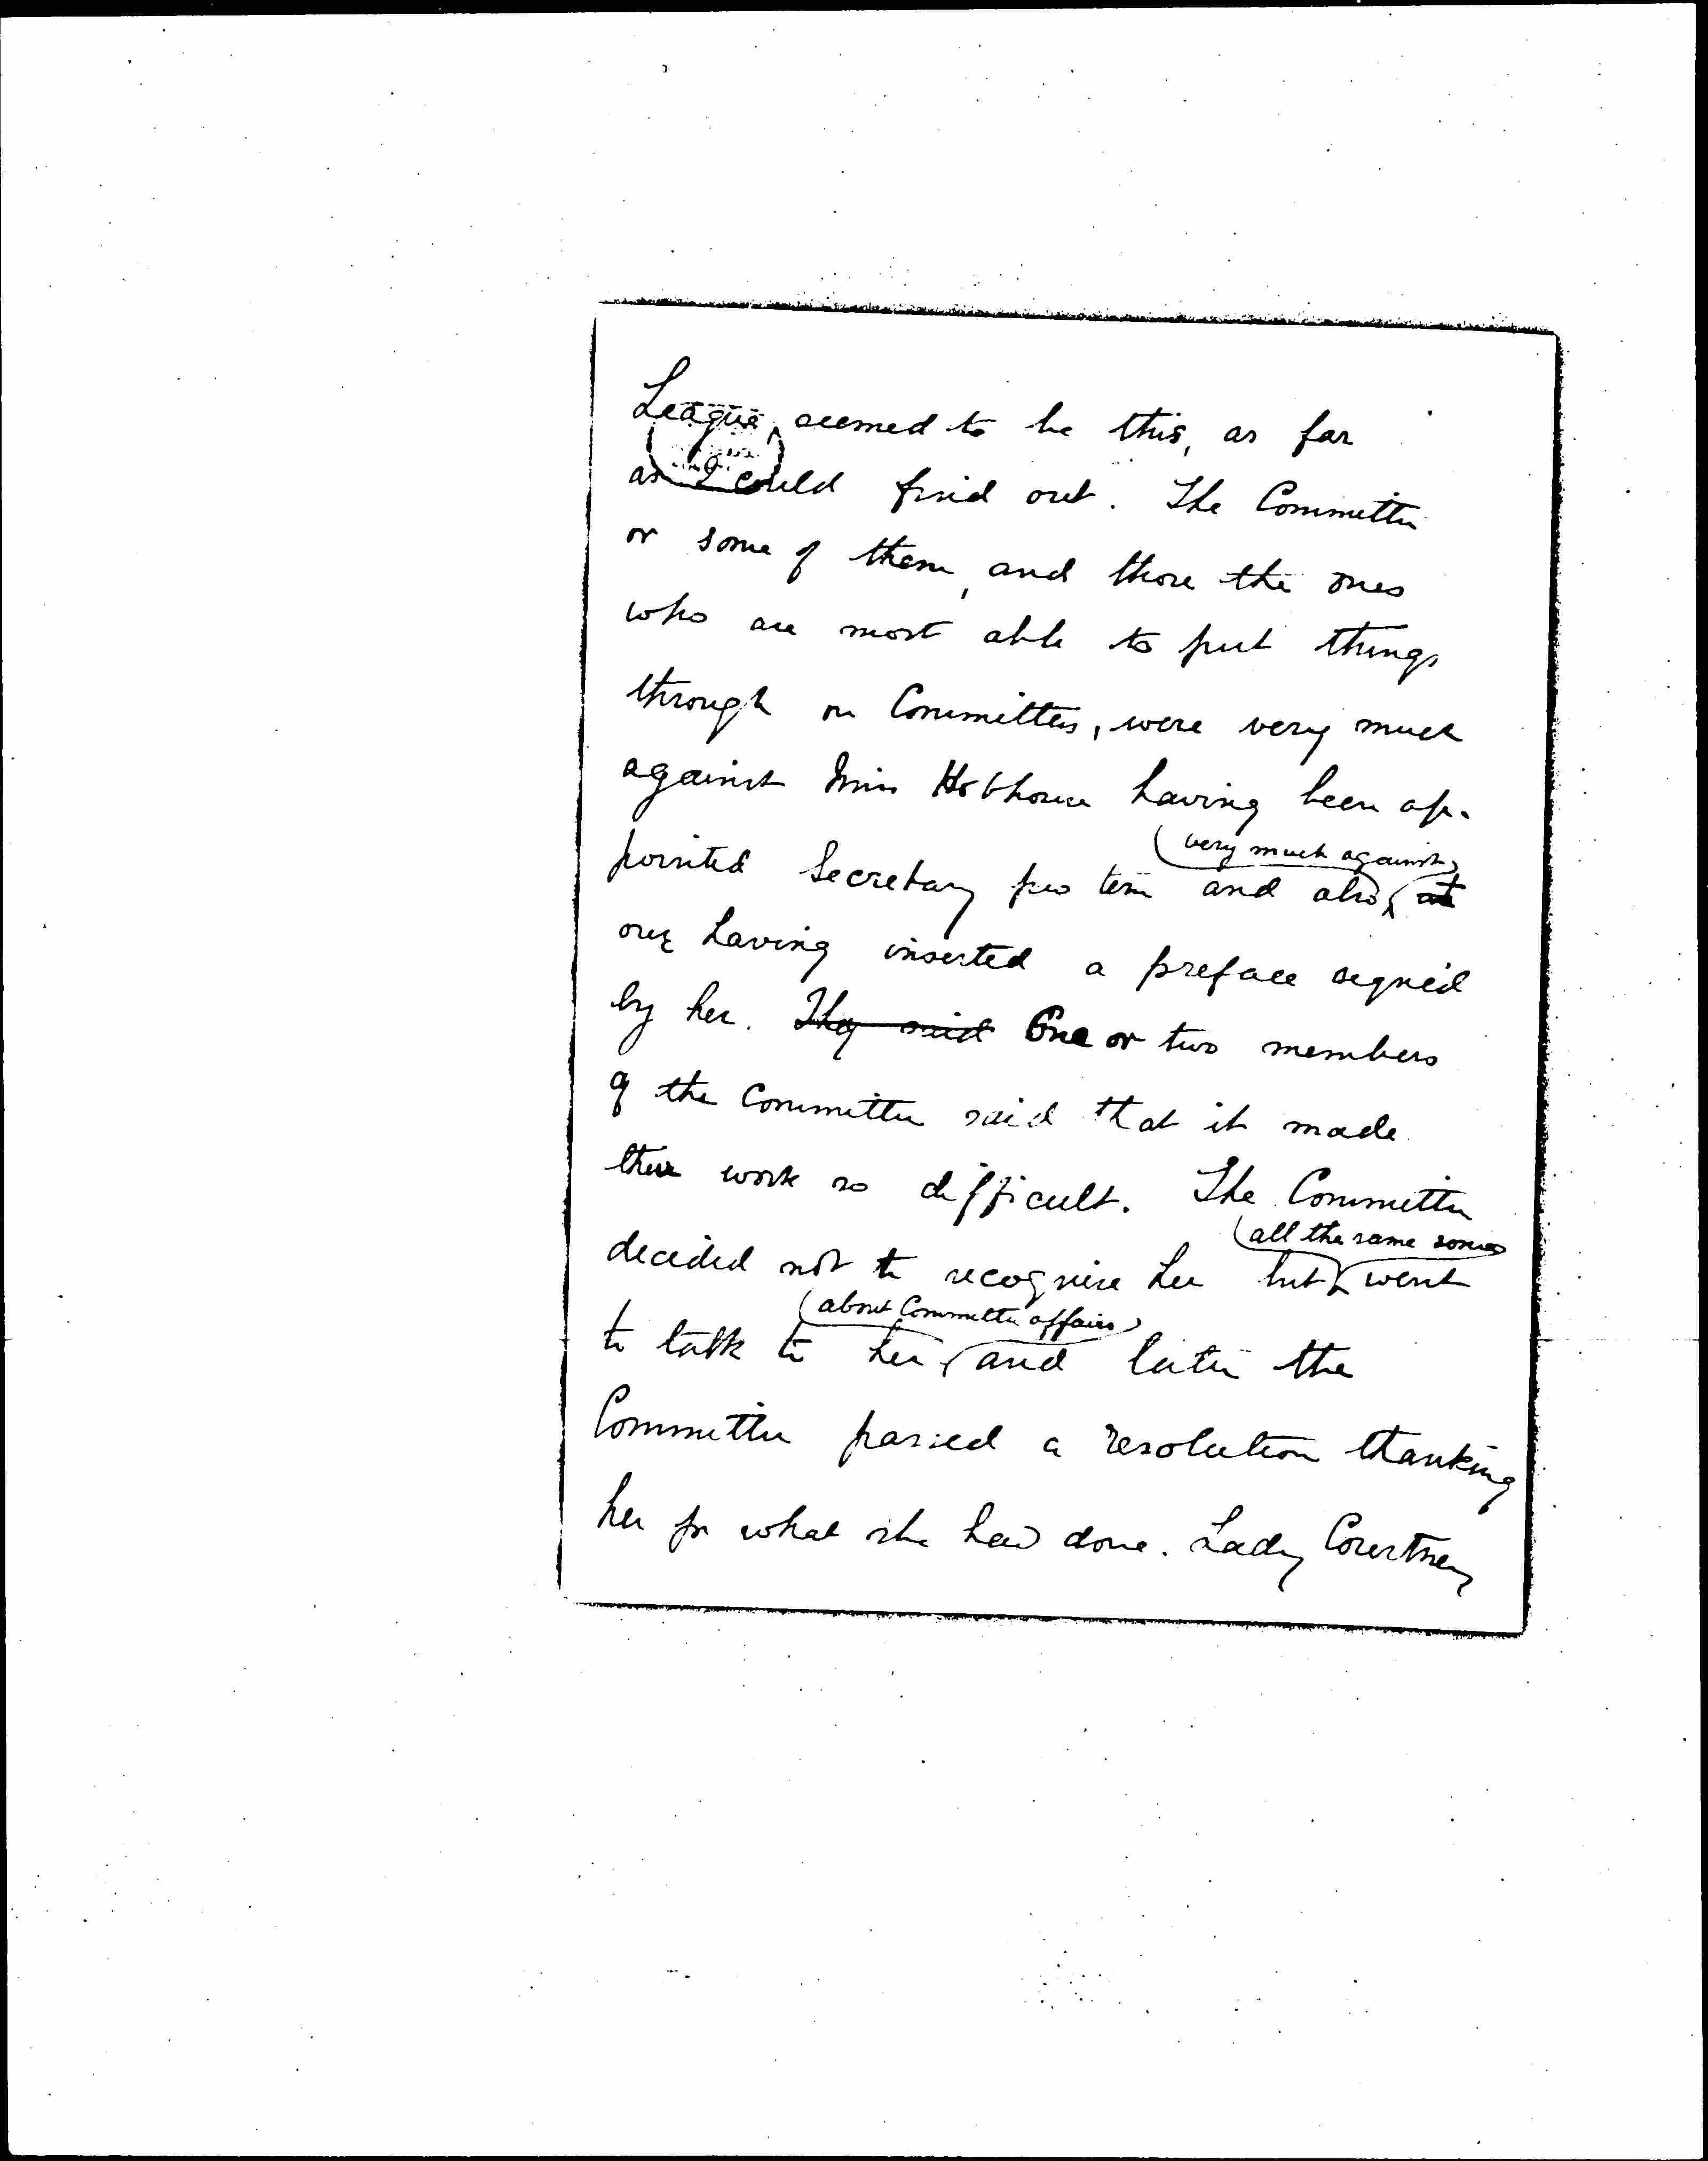 League, seemed to be this, as far
as I could find out. The Committee
or some of them, and those the ones
who are most able to put things
through on Committees, were very much
against Miss Hobhouse having been ap-
(very much against)
pointed Secretary pro tem and also at
our having inserted a preface signed
by her. They said One or two members
of the Committee said that it made
their work so difficult. The Committee
(all the same some
decided not to recognise her but went
(about Committee affairs)
to talk to her, and later the
Committee passed a resolution thanking
her for what she had done. Lady Courtney